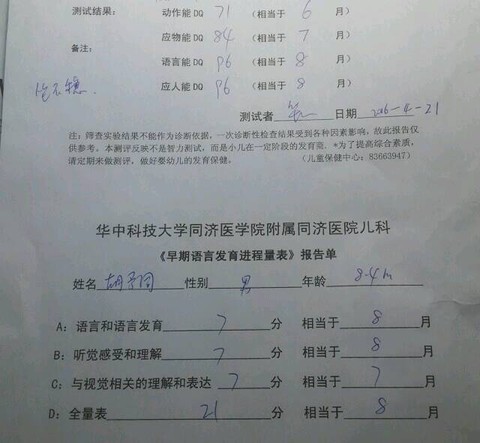 测试结果： 动作能DQ 71 （相当于 6 月）
应物能DQ 84 （相当于 7 月）
备注：
语言能DQ 96 （相当于 8 月）
应人能DQ 96 （相当于 8 月）
坐不稳.
测试者 日期 2016-4-21
注：筛查实验结果不能作为诊断依据，一次诊断性检查结果受到各种因素影响，故此报告仅
供参考。本测评反映不是智力测试，而是小儿在一定阶段的发育商。*为了提高综合素质，
请定期来做测评，做好婴幼儿的发育保健。 （儿童保健中心：83663947）
华中科技大学同济医学院附属同济医院儿科
《早期语言发育进程量表》报告单
姓名 胡 性别 男 年龄 8.4m
A：语言和语言发育 7 分 相当于 8 月
B：听觉感受和理解 7 分 相当于 8 月
C：与视觉相关的理解和表达 7 分 相当于 7 月
D：全量表 21 分 相当于 8 月